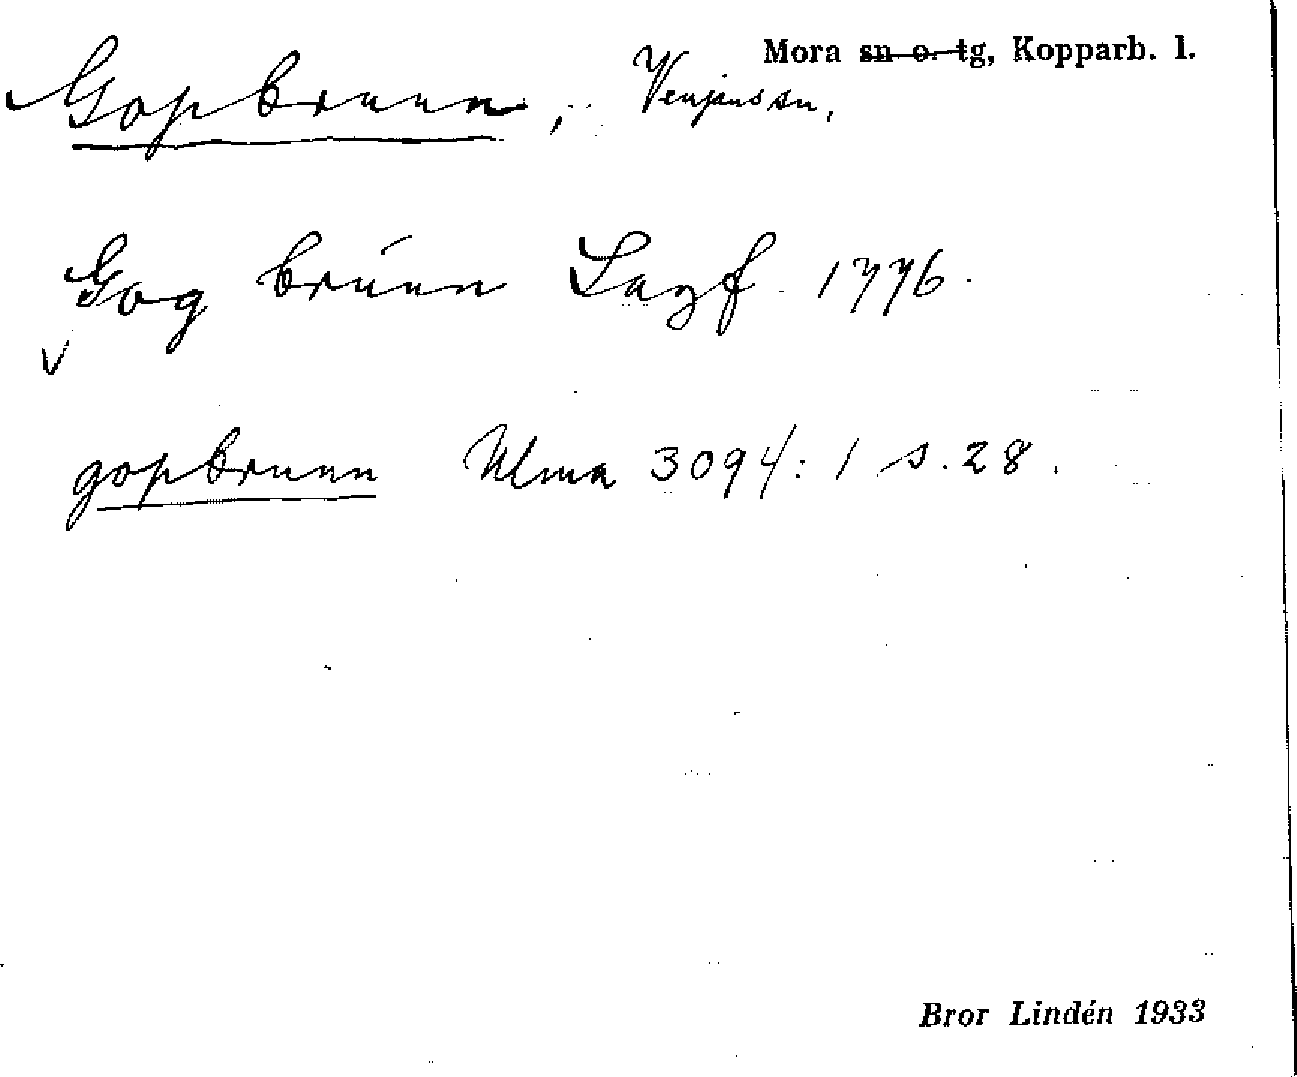 Mora sn o. tg, Kopparb. l.
Gopbrunn, Venjans sn,
Gog brúnn Lagf. 1776.
v
gopbrunn Ulma 3094:1 s. 28.
Bror Lindén 1933